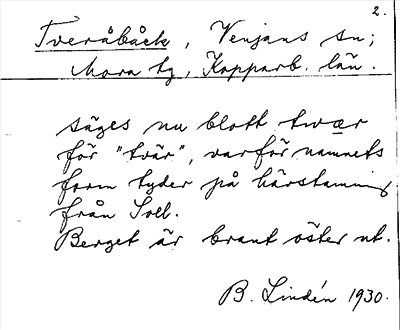 2.
Tveråbäck, Venjans sn;
Mora tg, Kopparb. län.
säges nu blott twær
för "tvär", varför namnets
form tyder på härstamning
från Soll.
Berget är brant öster ut.
B. Lindén 1930.